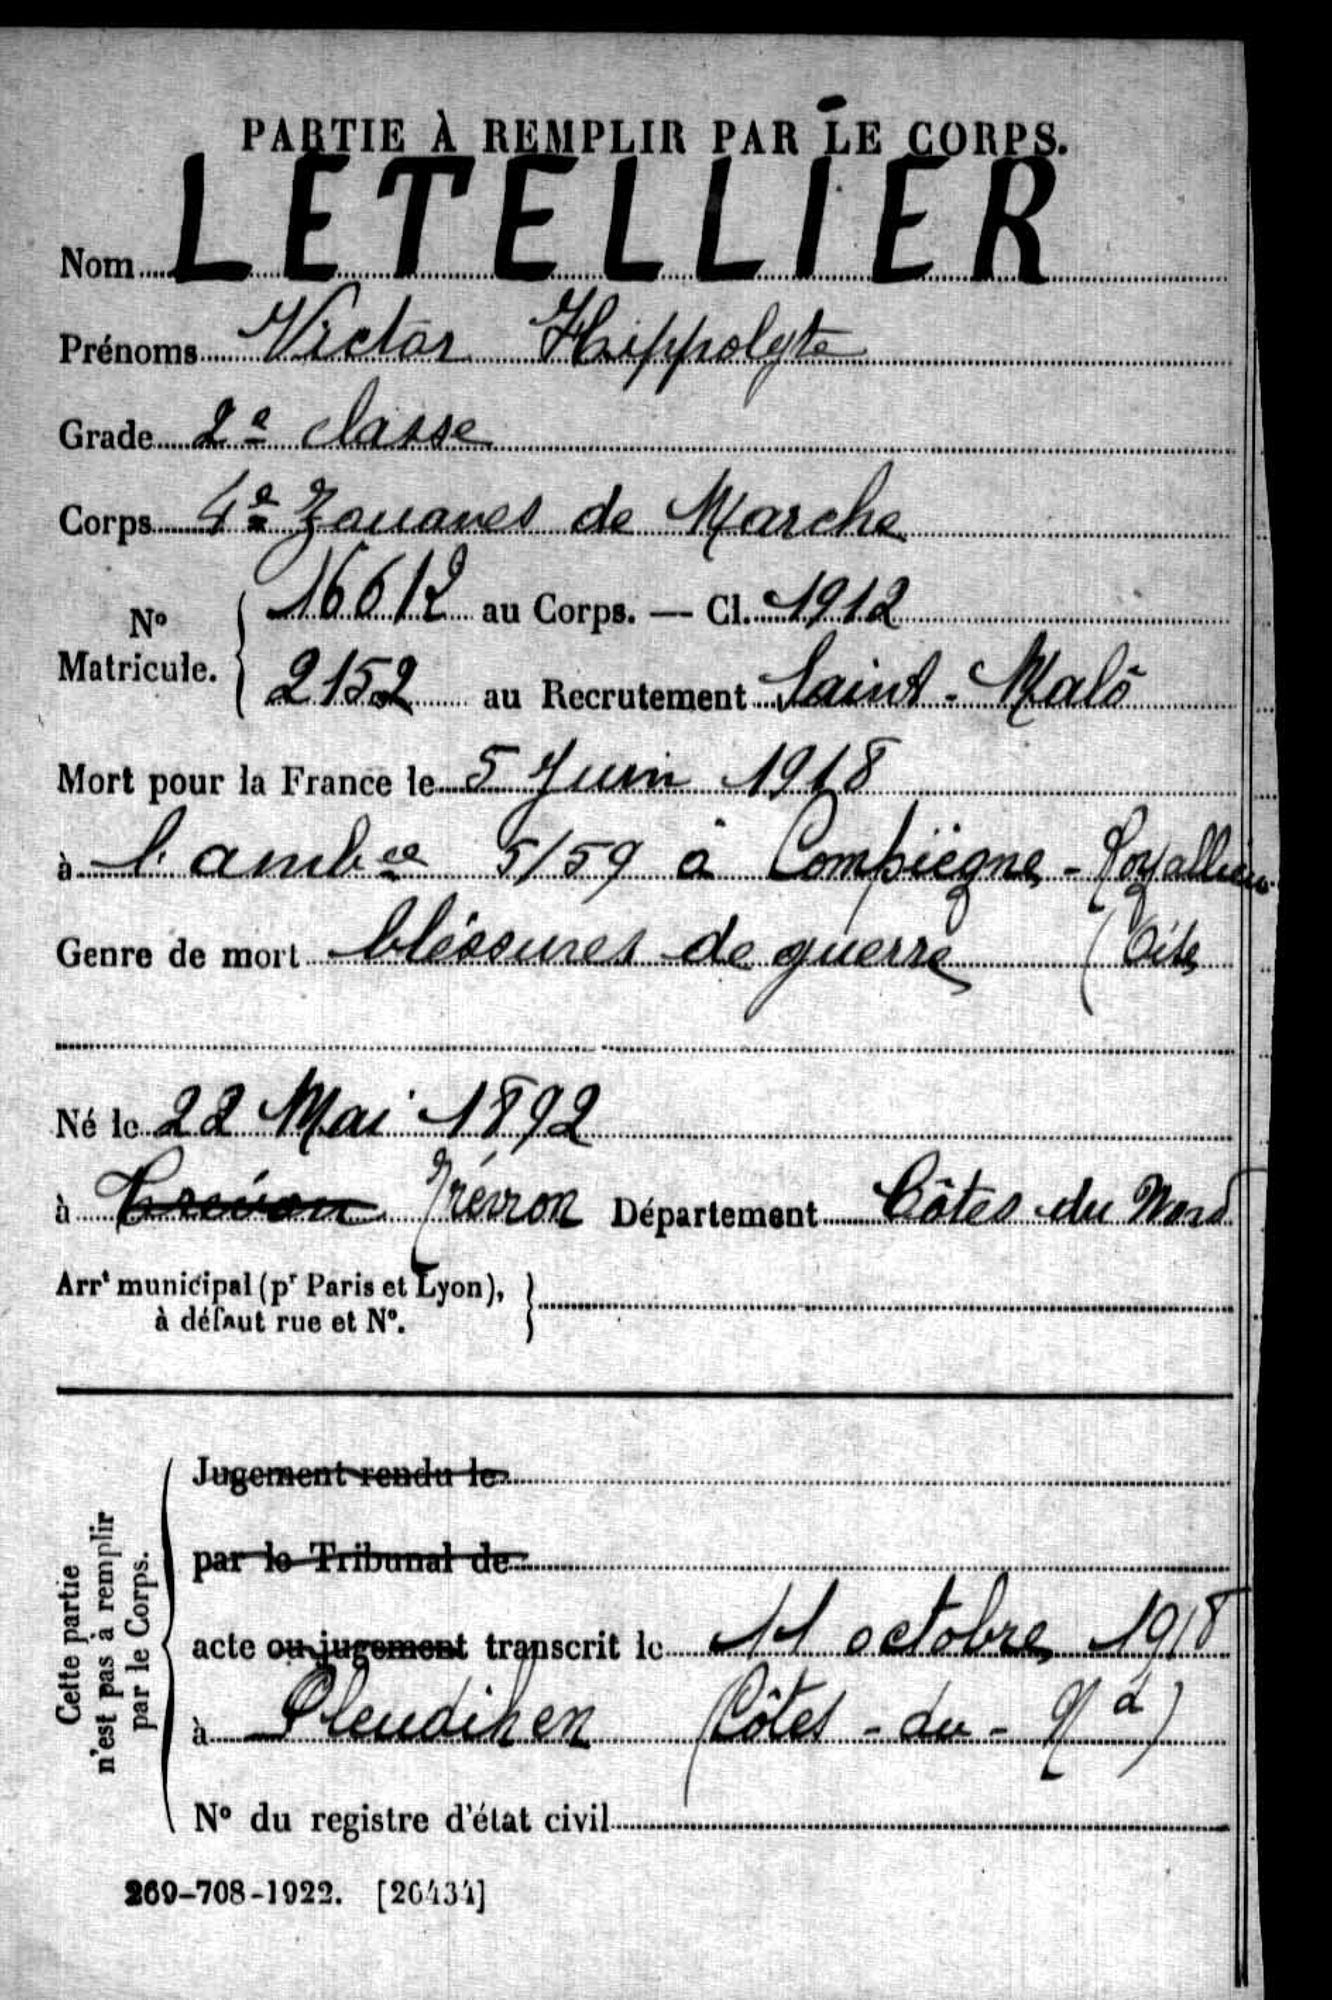 PARTIE À REMPLIR PAR LE CORPS.
Nom LETELLIER
Prénoms Victor Hippolyte
Grade 2e classe
Corps 4e Zouaves de Marche
No Matricule. { 16612 au Corps. — Cl. 1912
2152 au Recrutement Saint-Malô
Mort pour la France le 5 Juin 1918
à l'ambce 5/59 à Compiègne - Royallieu
Genre de mort bléssures de guerre (Oise
Né le 22 Mai 1892
à Trévon Trévron Département Côtes du Nord
Arrt municipal (pr Paris et Lyon), à défaut rue et No. }
Cette partie n'est pas à remplir par le Corps.
Jugement rendu le
par le Tribunal de
acte ou jugement transcrit le 11 octobre 1918
à Pleudihen (Côtes-du-Nd)
No du registre d'état civil
269-708-1922. [26434]